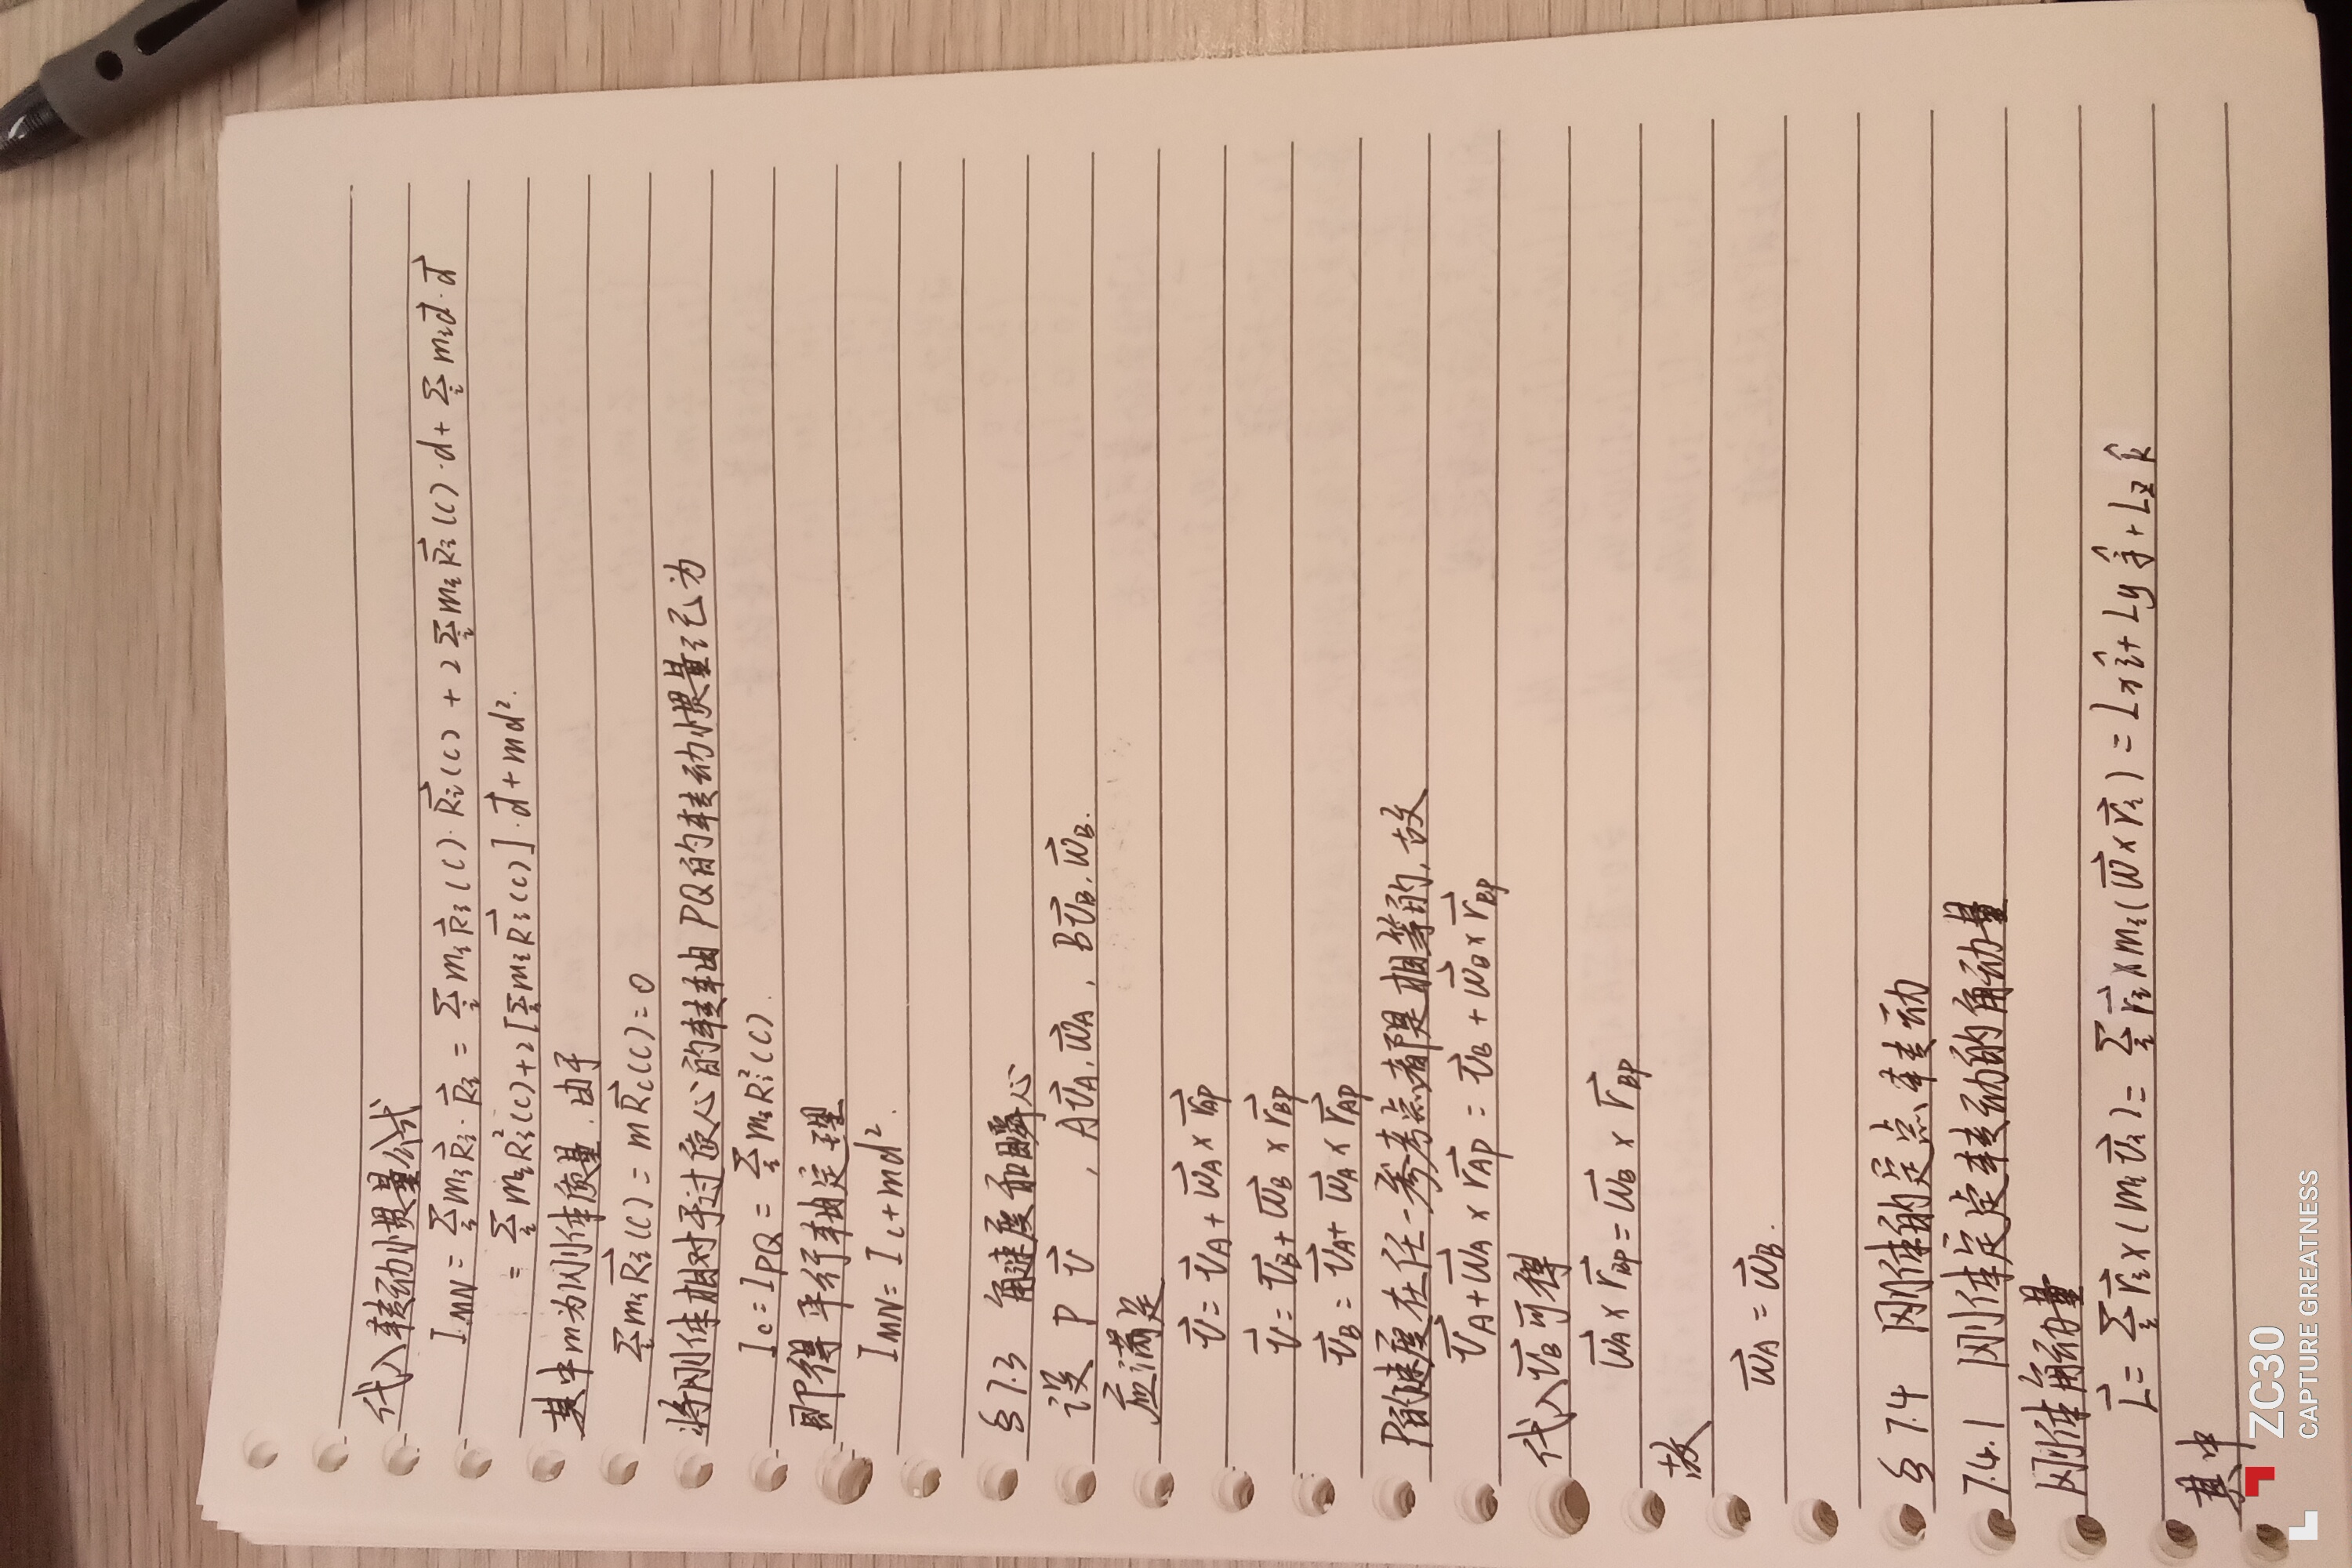 代入转动惯量公式
I_MN = Σ_i m_i R⃗_i · R⃗_i = Σ_i m_i R⃗_i(C) · R⃗_i(C) + 2 Σ_i m_i R⃗_i(C) · d + Σ_i m_i d⃗ · d⃗
= Σ_i m_i R_i²(C) + 2[Σ_i m_i R⃗_i(C)] · d⃗ + md².
其中m为刚体质量,由于
Σ_i m_i R⃗_i(C) = m R⃗_C(C) = 0
将刚体相对于过质心的转轴PQ的转动惯量记为
I_C = I_PQ = Σ_i m_i R_i²(C).
即得平行轴定理
I_MN = I_C + md².
§7.3 角速度和瞬心
设 P v⃗ , A v⃗_A, ω⃗_A , B v⃗_B, ω⃗_B.
应满足
v⃗ = v⃗_A + ω⃗_A × r⃗_AP
v⃗ = v⃗_B + ω⃗_B × r⃗_BP
v⃗_B = v⃗_A + ω⃗_A × r⃗_AP
P的速度在任一参考点都是相等的,故
v⃗_A + ω⃗_A × r⃗_AP = v⃗_B + ω⃗_B × r⃗_BP
代入v⃗_B可得
ω⃗_A × r⃗_BP = ω⃗_B × r⃗_BP
故
ω⃗_A = ω⃗_B.
§7.4 刚体的定点转动
7.4.1 刚体定点转动的角动量
刚体角动量
L⃗ = Σ_i r⃗_i × (m_i v⃗_i) = Σ_i r⃗_i × m_i(ω⃗ × r⃗_i) = L_x î + L_y ĵ + L_z k̂
其中
ZC30
CAPTURE GREATNESS